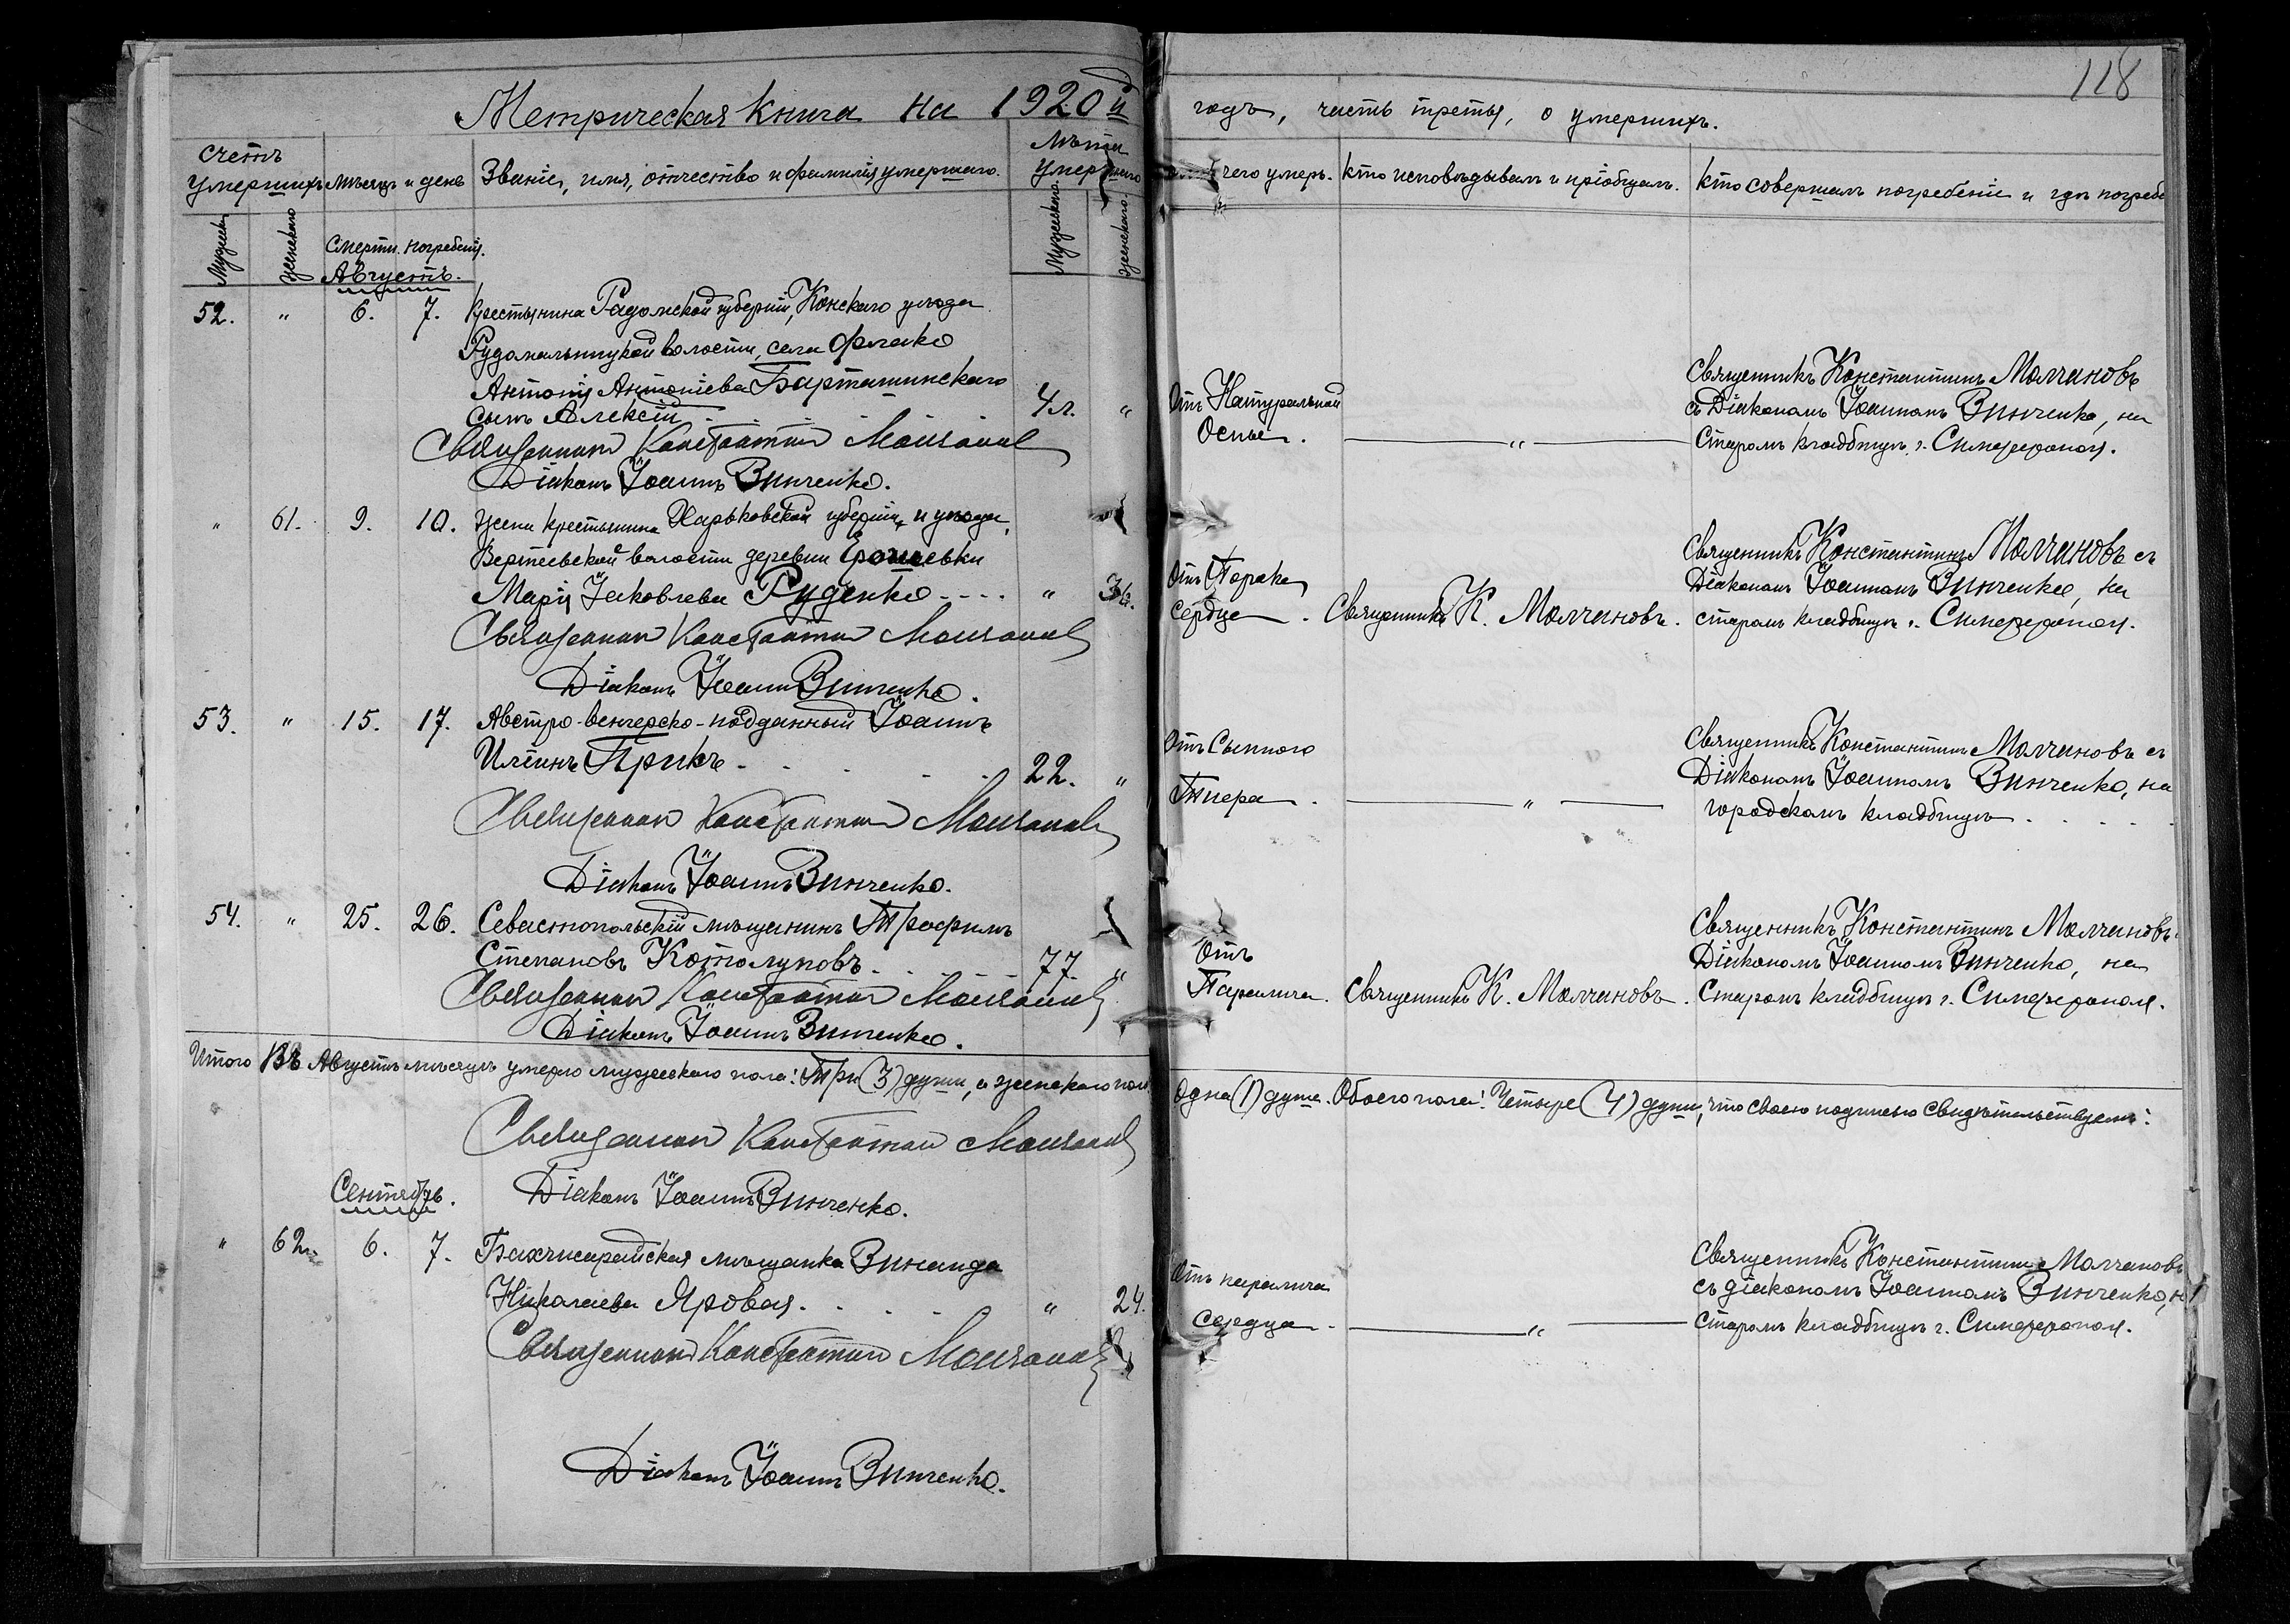 118
Метрическая книга на 1920й
годъ, часть третья, о умершихъ.
Счетъ умершихъ
Мѣсяцъ и день
Званіе, имя, отчество и фамилія умершаго.
Лѣта умершаго
чего умеръ.
Кто исповѣдывалъ и пріобщалъ.
Кто совершалъ погребеніе и гдѣ погребе
Мужеск.
женскаго
Смерти. погребенія.
Мужескаго
женскаго
Августъ.
52. " 6. 7. Крестьянина Радомской губерніи, Конскаго уѣзда
Рудомальницкой волости, села Флако
Антонія Антоніева Барташинскаго
сынъ Алексій 4 л. "
Отъ Натуральной
Оспы. "
Священникъ Константинъ Молчановъ
съ Діакономъ Іоанномъ Винченко, на
Старомъ кладбищѣ г. Симферополя.
Священникъ Константинъ Молчановъ
Діаконъ Іоаннъ Винченко.
" 61. 9. 10. Жена крестьянина Харьковской губерніи, и уѣзда,
Вертеевской волости деревни Ерошевки
Марія Іаковлева Руденко " 36.
Отъ Порока
Сердца.
Священникъ К. Молчановъ.
Священникъ Константинъ Молчановъ съ
Діакономъ Іоанномъ Винченко, на
старомъ кладбищѣ г. Симферополя.
Священникъ Константинъ Молчановъ
Діаконъ Іоаннъ Винченко.
53. " 15. 17. Австро-венгерско-подданный Іоаннъ
Иліинъ Прикъ 22. "
Отъ Сыпного
Тифа. "
Священникъ Константинъ Молчановъ съ
Діакономъ Іоанномъ Винченко, на
городскомъ кладбищѣ
Священникъ Константинъ Молчановъ
Діаконъ Іоаннъ Винченко.
54. " 25. 26. Севастопольскій мѣщанинъ Трофимъ
Степановъ Котолуповъ. 77. "
Отъ
Паралича.
Священникъ К. Молчановъ.
Священникъ Константинъ Молчановъ
Діакономъ Іоанномъ Винченко, на
Старомъ кладбищѣ г. Симферополя.
Священникъ Константинъ Молчановъ
Діаконъ Іоаннъ Винченко.
Итого Въ Августѣ мѣсяцѣ умерло мужескаго пола: Три (3) души, а женскаго пола
Одна (1) душа. Обоего пола: Четыре (4) души, что своею подписью свидѣтельствуемъ:
Священникъ Константинъ Молчановъ
Діаконъ Іоаннъ Винченко.
Сентябрь.
" 62. 6. 7. Бахчисарайская мѣщанка Зинаида
Николаева Яровая. " 24.
Отъ паралича
Сердца. "
Священникъ Константинъ Молчановъ
съ діакономъ Іоанномъ Винченко, н
старомъ кладбищѣ г. Симферополя.
Священникъ Константинъ Молчановъ
Діаконъ Іоаннъ Винченко.